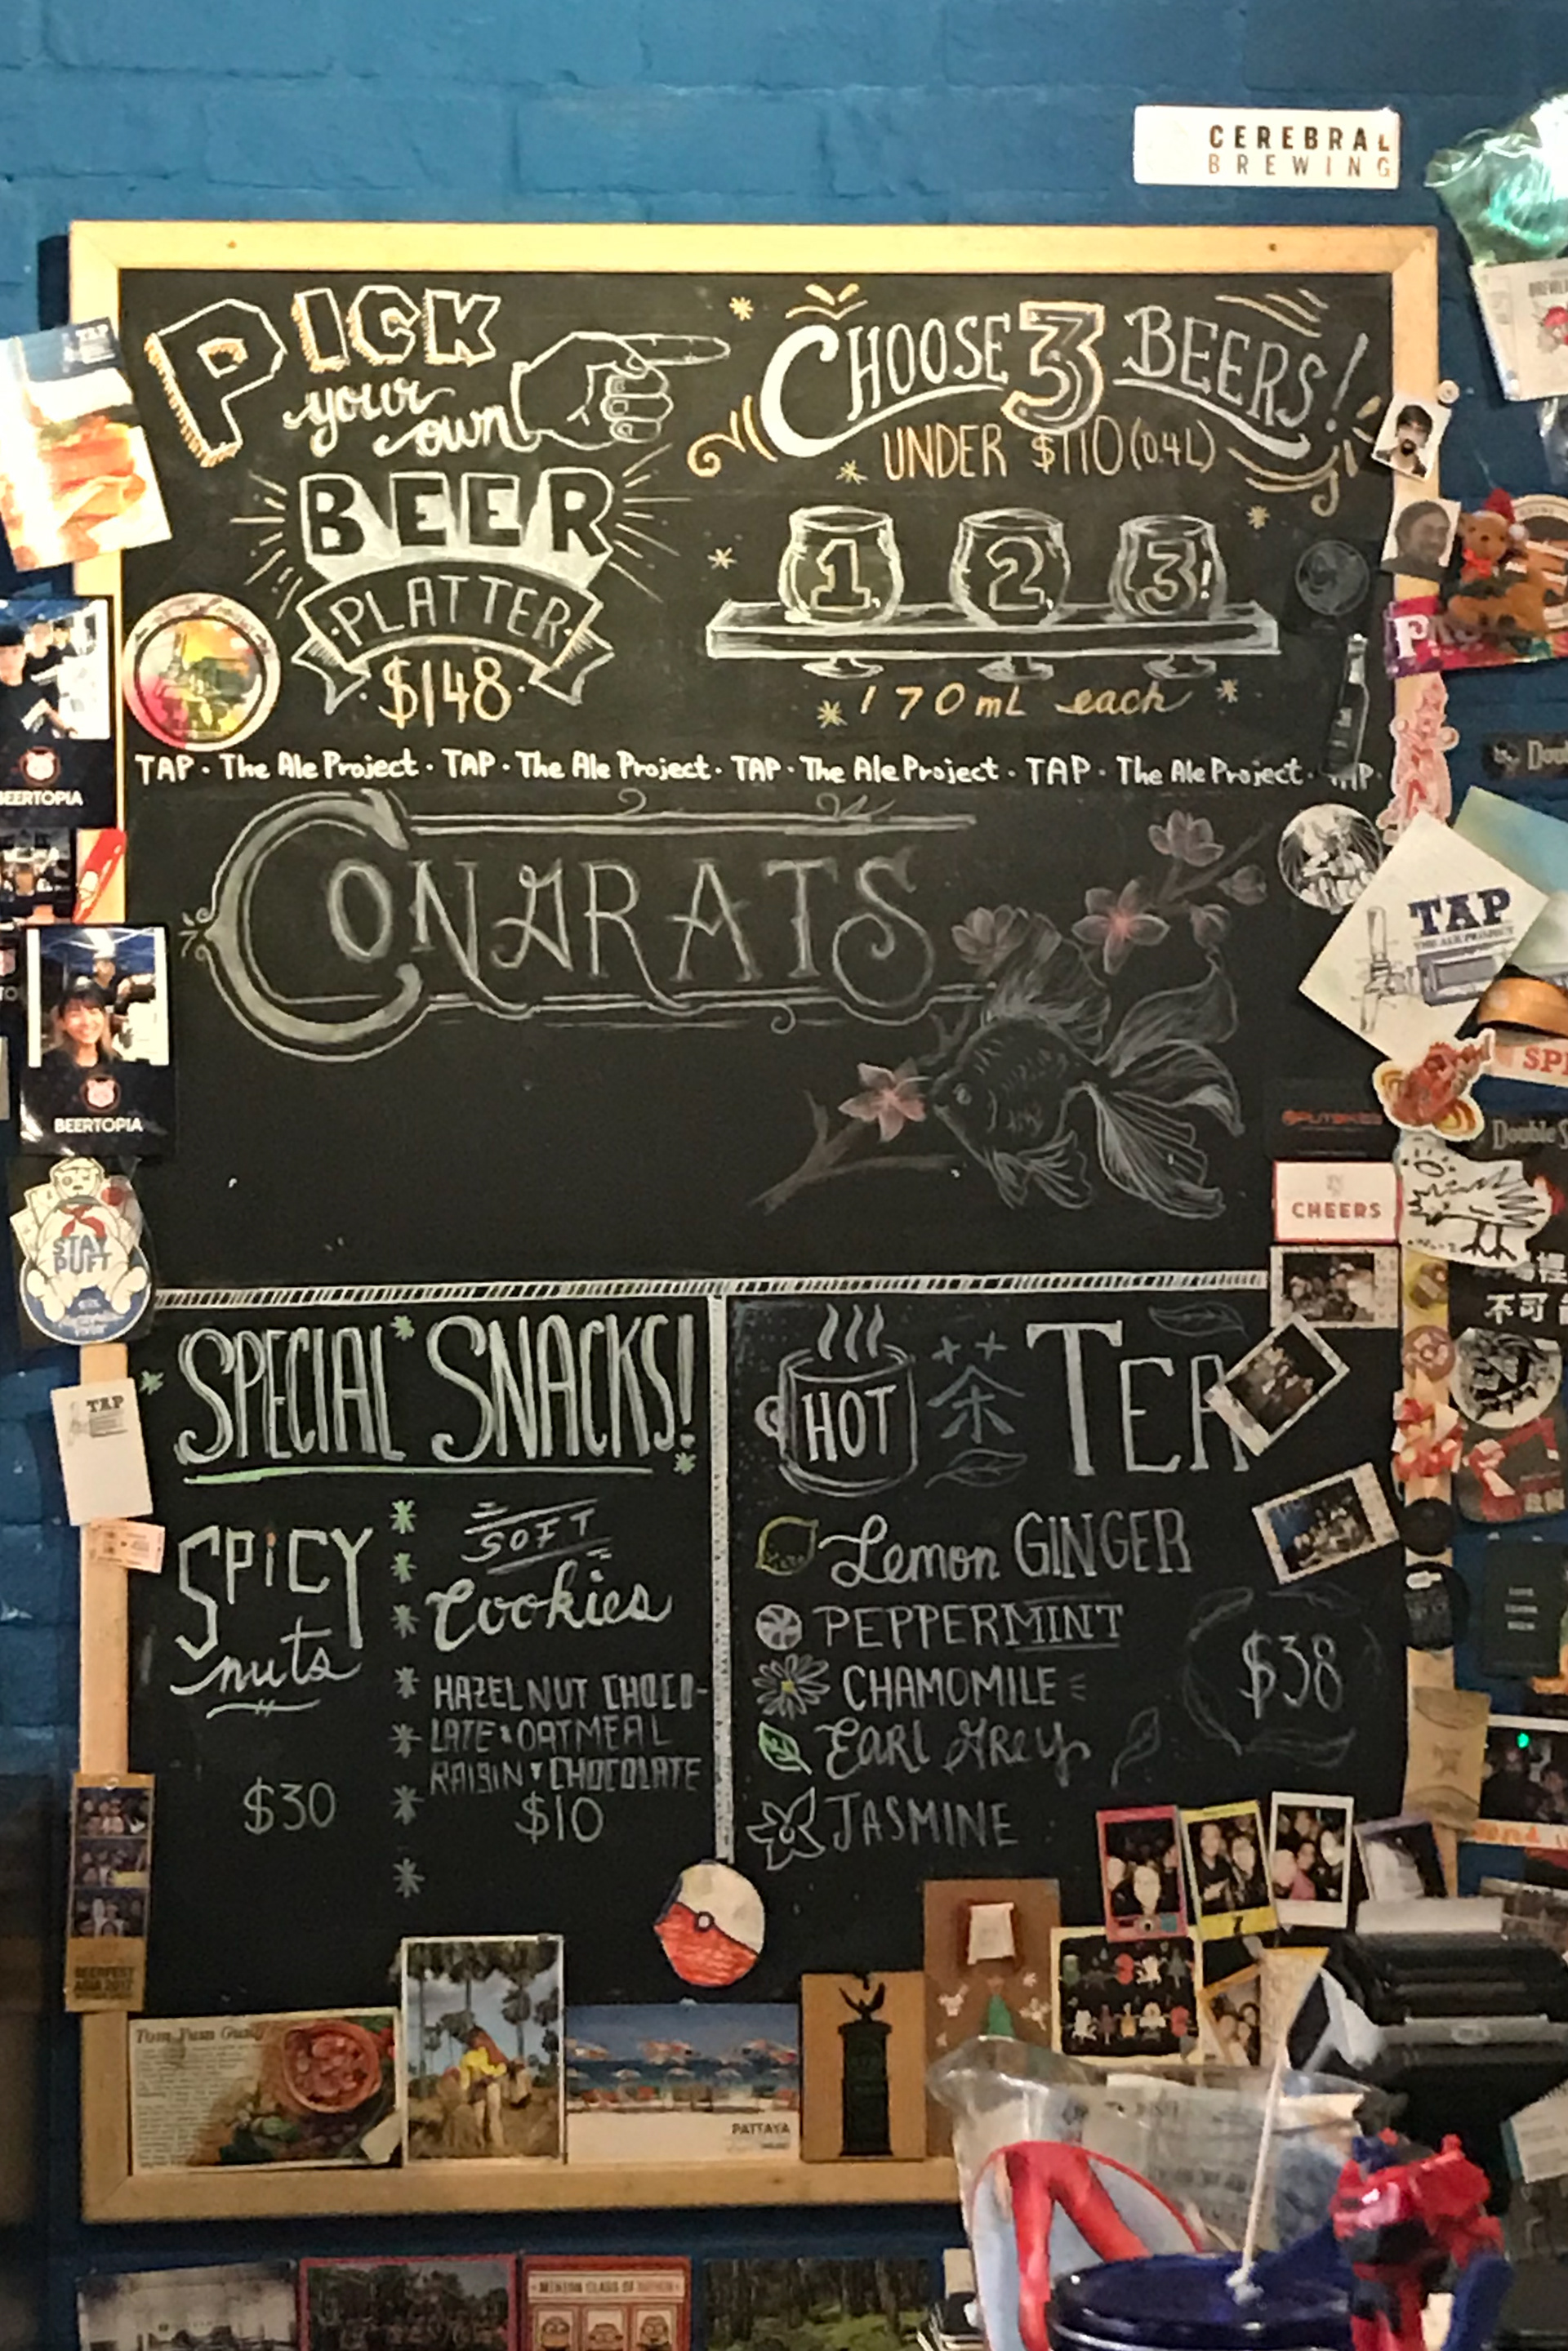 CEREBRAL
BREWING
PICK
your
own
BEER
PLATTER
$148
CHOOSE 3 BEERS!
UNDER $110 (0.4L)
1, 2, 3!
170mL each
TAP · The Ale Project · TAP · The Ale Project · TAP · The Ale Project · TAP · The Ale Project · TAP
CONGRATS
SPECIAL SNACKS!
SPiCY
nuts
$30
SOFT
Cookies
HAZELNUT CHOCO-
LATE & OATMEAL
RAISIN & CHOCOLATE
$10
HOT 茶 TEA
Lemon GINGER
PEPPERMINT
CHAMOMILE
EARL GREY
JASMINE
$38
BEERTOPIA
BEERTOPIA
STAY
PUFT
TAP
TAP
THE ALE PROJECT
CHEERS
Double
不可
Tom Yum Gung
PATTAYA
BEERFEST
ASIA 2017